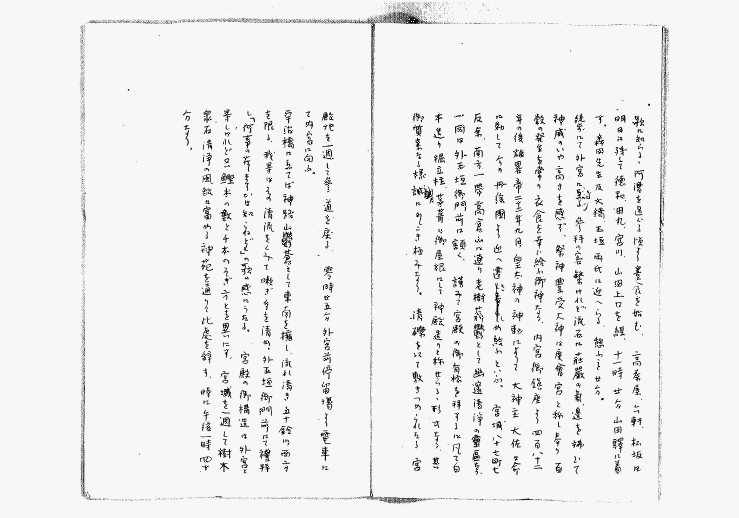 歌に知らるゝ阿漕を過ぐる頃より昼食を始む。高茶屋、六軒、松坂は
明日に残して徳和、田丸、宮川、山田上口を経、十一時廿分山田驛に着
す。森田先生及大橋、玉垣両氏に迎へらる。
続きにて外宮に参る。
神威のいや高きを感ず。祭神豊受大神は度會宮と称し奉り百
穀の発生を掌り衣食を幸ひ給ふ御神なり。内宮御鎮座より四百八十二
年の後雄略帝二十二年九月皇大神の神勅によりて大神主大佐々命
に勅して今の丹後國より迎へ遷し給ふといふ。宮域八十七町七
反余、南方一帯高倉山に連り老樹蓊鬱として幽邃清浄の霊区なり。
一同は外玉垣御門前に額く。謹みて宮殿の御有様を拝するに凡て白
木造り、掘立柱、茅葺の御屋根にして神殿造りと称せらるゝ形式なり。其
御質素なる様誠に
清礫を以て敷きつめられたる宮
殿地を一週して参道を戻る。零時廿五分外宮前停留場より電車に
て内宮に向ふ。
宇治橋に立てば神路山鬱蒼として東南を擁し、流れ清き五十鈴川西方
を限る。我等はその清流をくみて嗽ぎ手を清め、外玉垣御門前にて礼拝
し「何事のおはしますかは知らねども」の歌の感にうたる。宮殿の御構造は外宮と
等しけれど只鰹木の数と千木のそぎ方とを異にす。宮域を一週して樹木
泉石清浄の風致に富める神苑を通りて此處を辞す。時に午後一時四十
分なり。